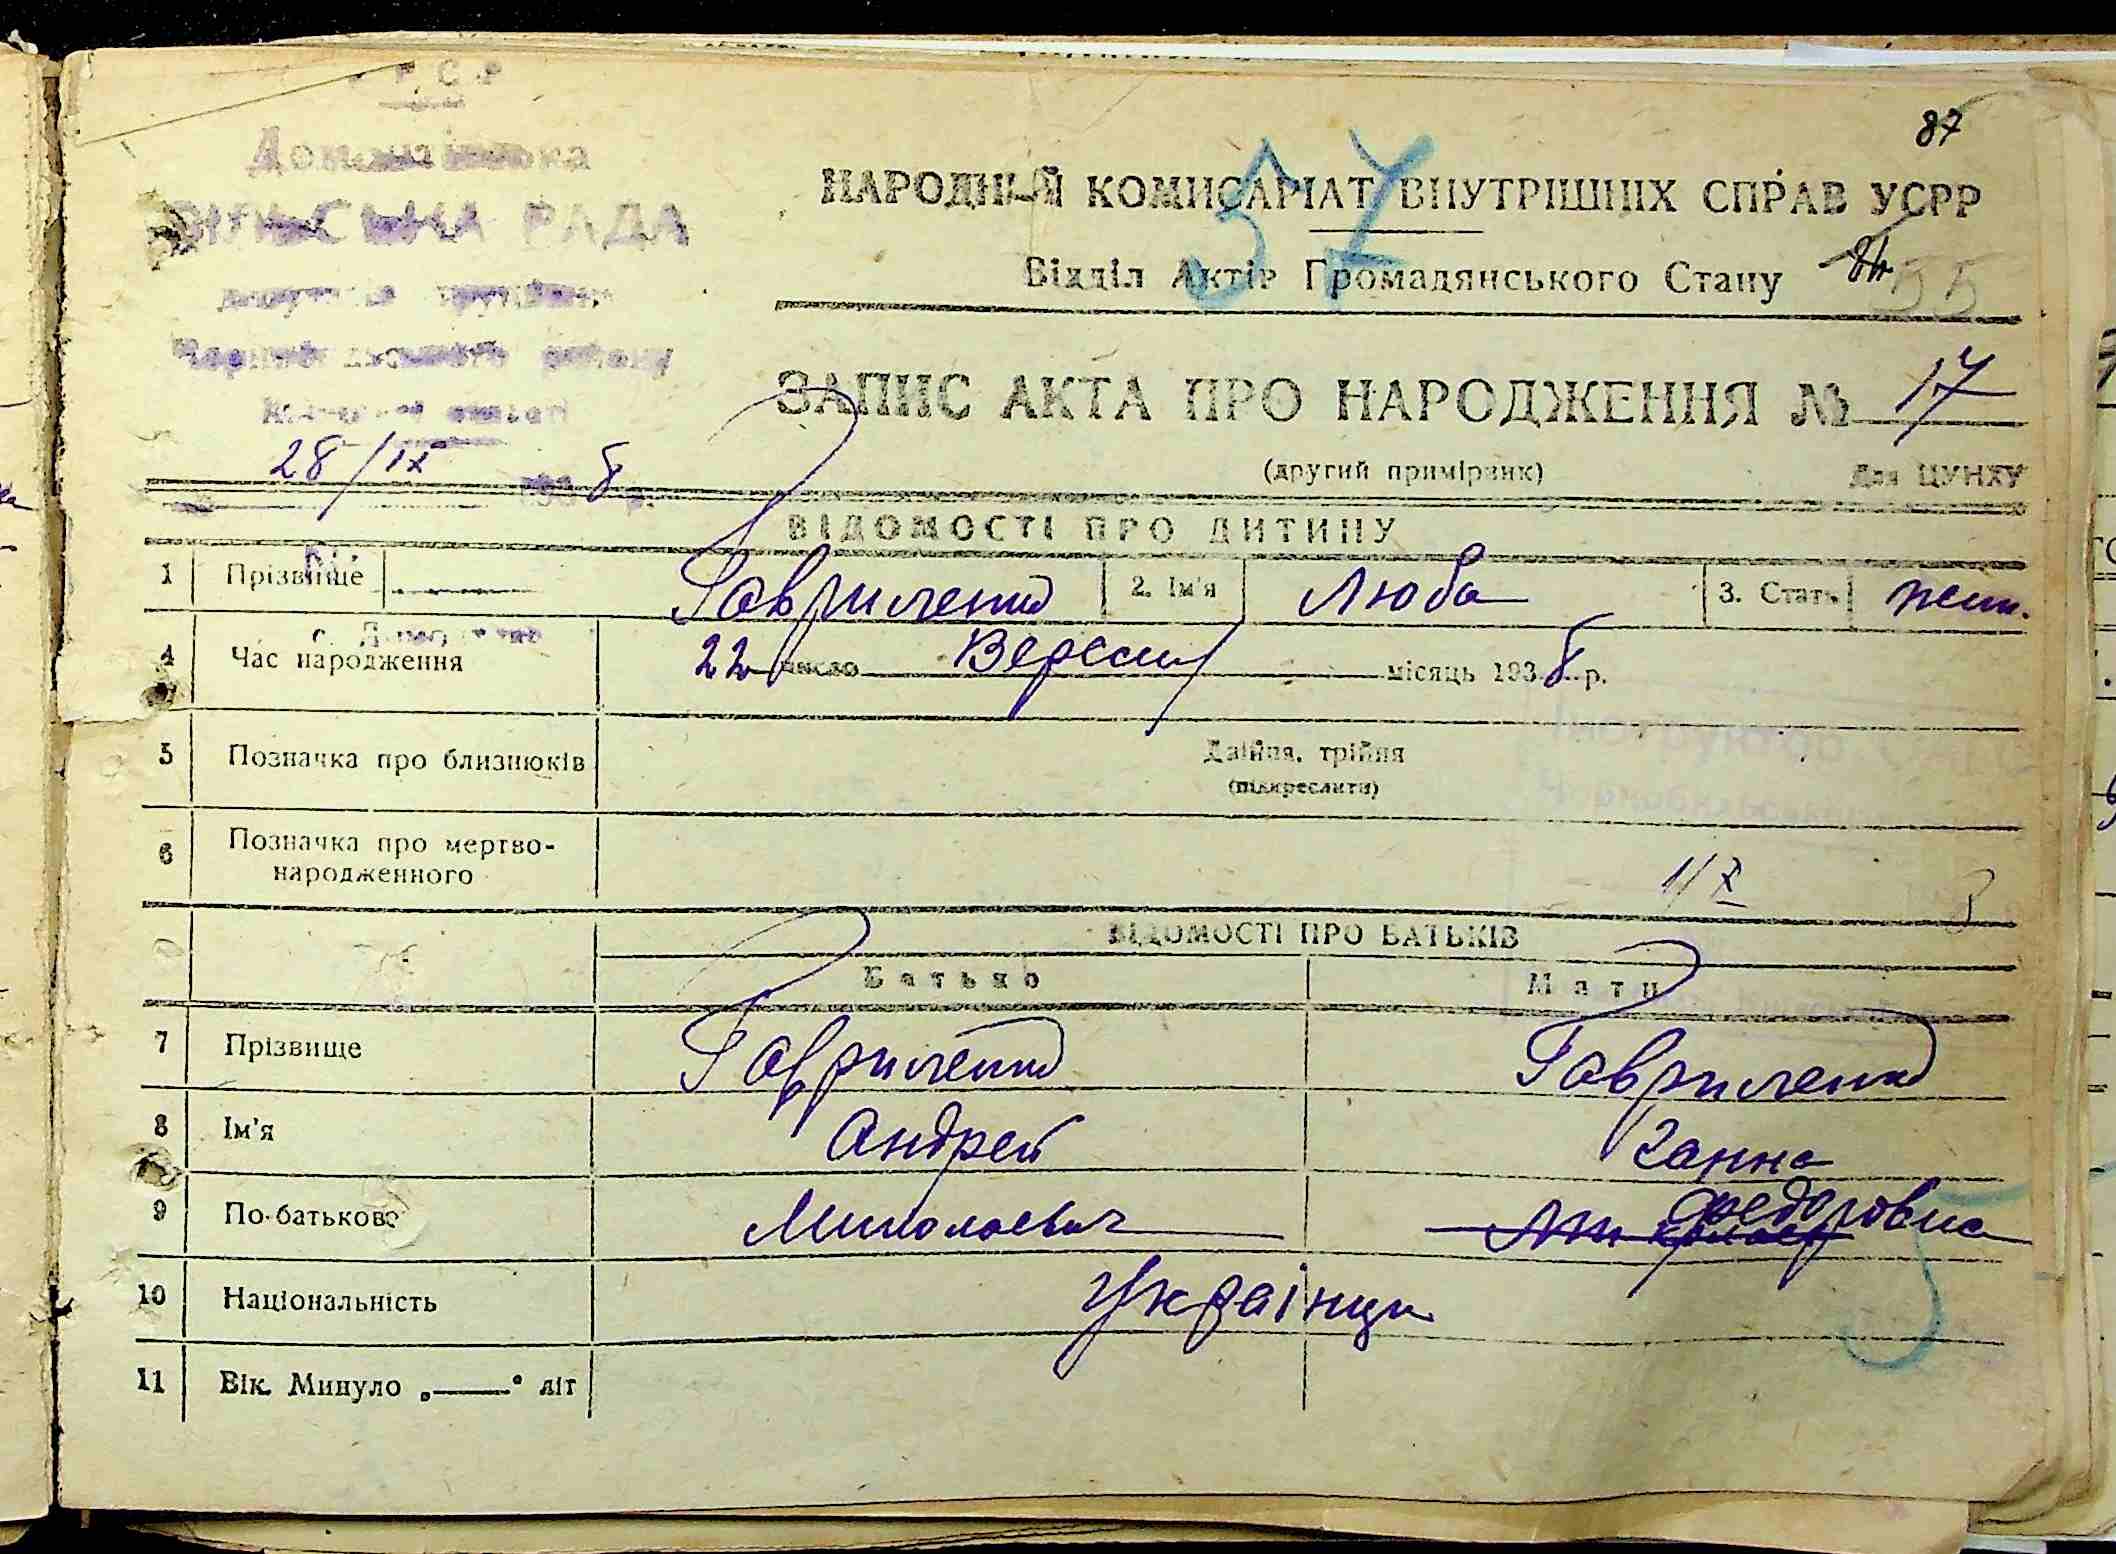 87
НАРОДНИЙ КОМИСАРІАТ ВНУТРІШНІХ СПРАВ УСРР
Відділ Актів Громадянського Стану
55
57
СІЛЬСЬКА РАДА
ЗАПИС АКТА ПРО НАРОДЖЕННЯ № 17
(другий примірник) Для ЦУНХУ
28/IX 1938 р.
ВІДОМОСТІ ПРО ДИТИНУ
1 Прізвище Гавриленко 2. Ім'я Люба 3. Стать жін.
4 Час народження 22 число Вересня місяць 1938 р.
5 Позначка про близнюків Двійня, трійня
(підкреслити)
6 Позначка про мертво-
народженного
1/X
ВІДОМОСТІ ПРО БАТЬКІВ
Батько Мати
7 Прізвище Гавриленко Гавриленко
8 Ім'я Андрей Ганна
9 По-батькове Миколаевич Федоровна
10 Національність Українци
11 Вік. Минуло „——“ літ